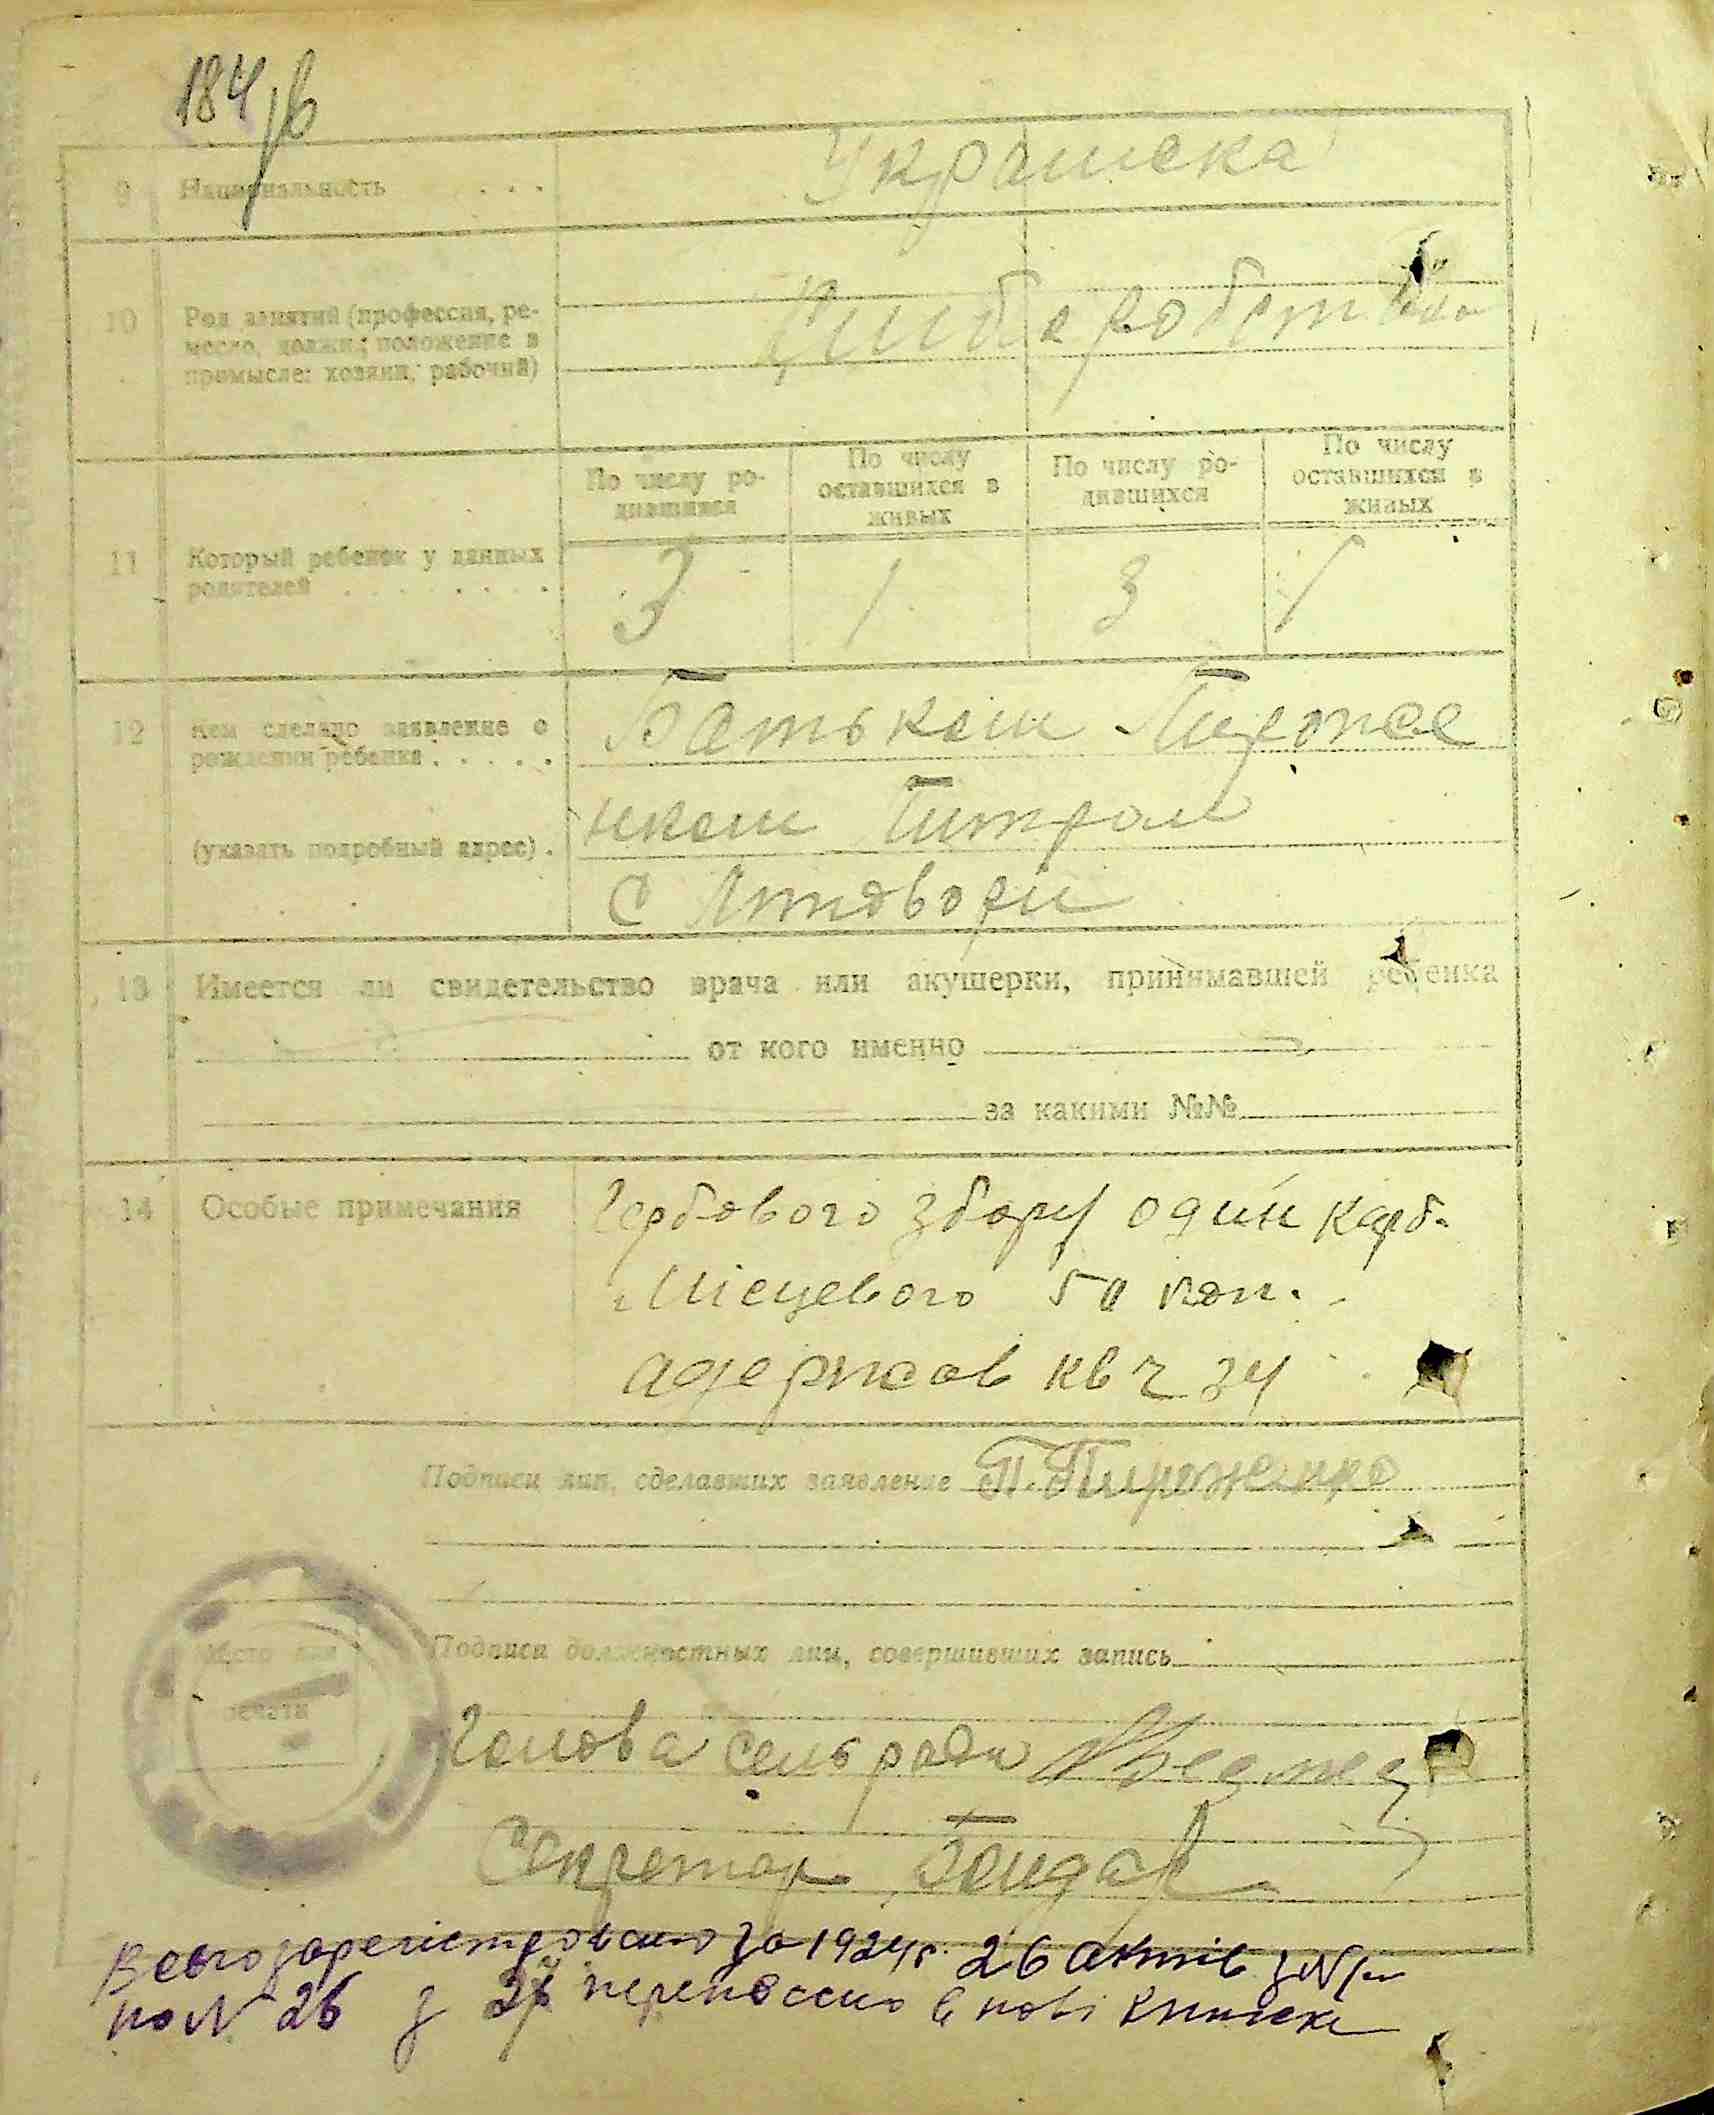 184
9 Национальность . . . Українска
10 Род занятий (профессия, ре-
месло, должн., положение в
промысле: хозяин, рабочий)
По числу ро-
дившихся
По числу
оставшихся в
живых
По числу ро-
дившихся
По числу
оставшихся в
живых
11 Который ребенок у данных
родителей . . . . . . . .
3 1 3 1
12 Кем сделано заявление о
рождении ребенка . . . . .
(указать подробный адрес) .
Батьком Пироже
нком Питром
с
13 Имеется ли свидетельство врача или акушерки, принимавшей ребенка
от кого именно
за какими №№
14 Особые примечания
Гербового збору один карб.
Місцевого 50 коп.
адержав кв ч 34
Подписи лиц, сделавших заявление П. Пироженко
Место для
печати
Подписи должностных лиц, совершивших запись
Голова сельради
Секретар Бондар
Всего зарегістровано за 1924 г. 26 актів з №
по № 26 з перенесено в нові книжки